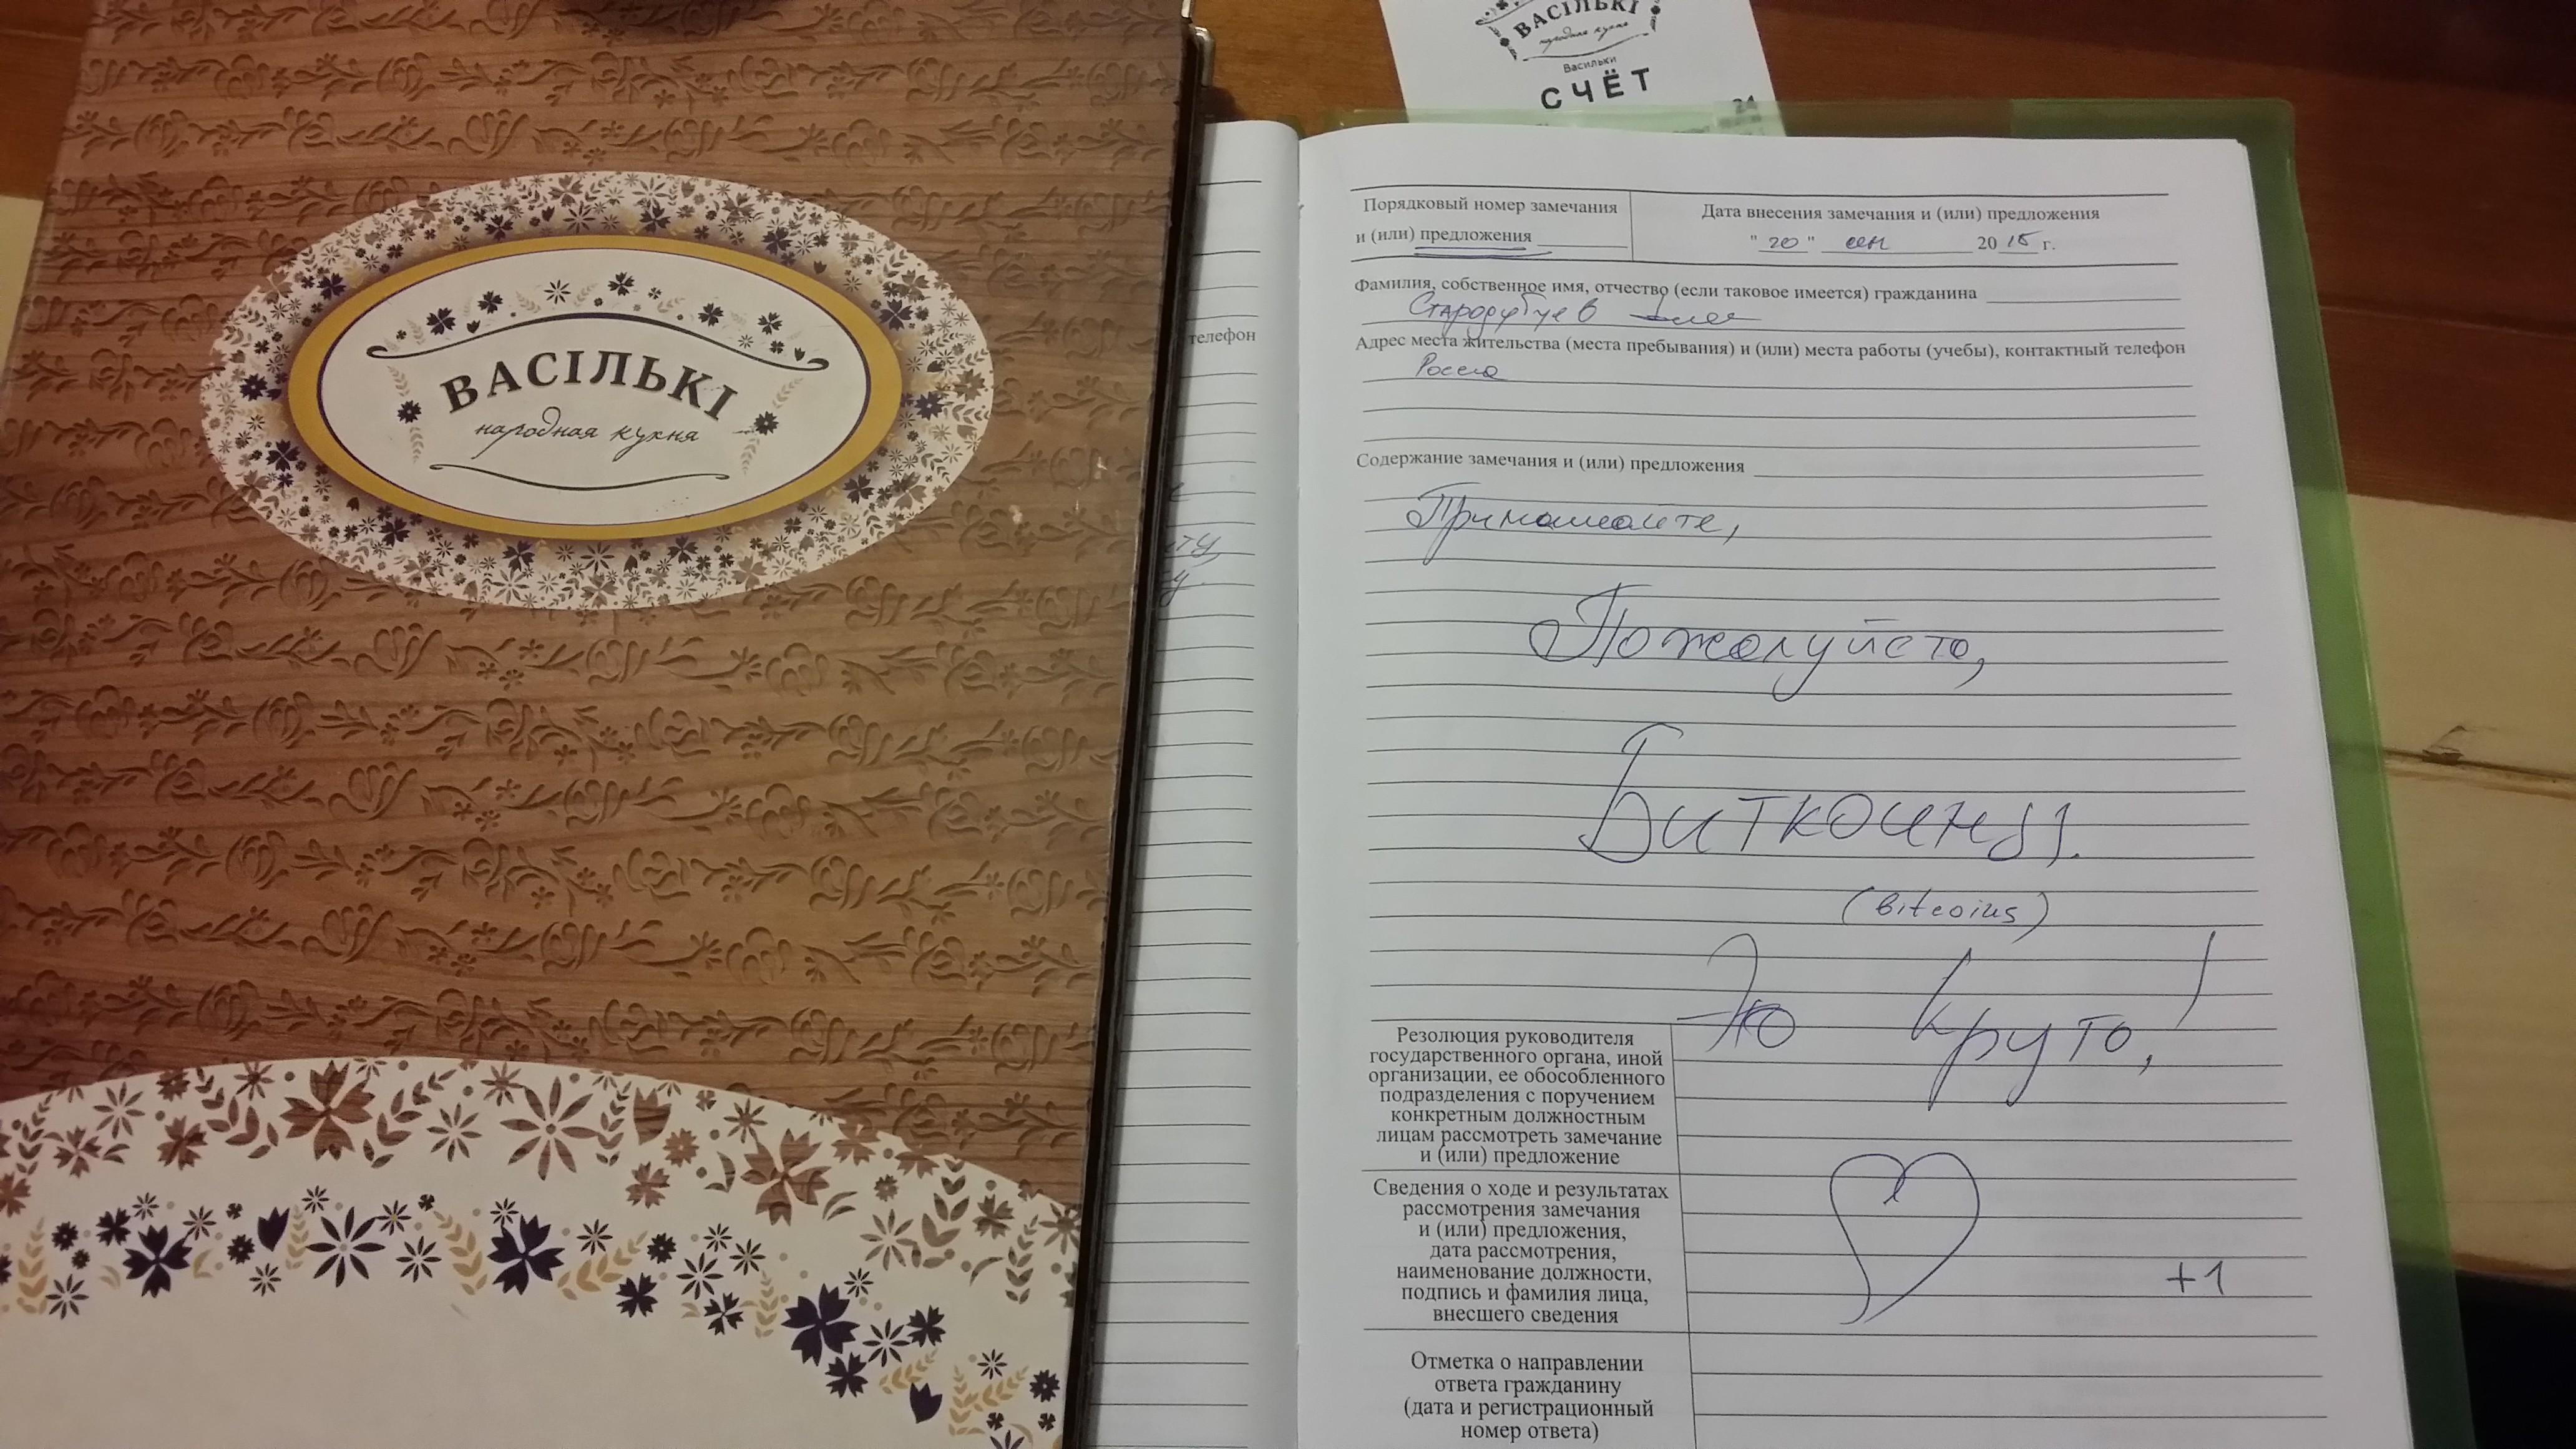 ВАСІЛЬКІ
народная кухня
ВАСІЛЬКІ
народная кухня
Васильки
СЧЁТ
24
телефон
Порядковый номер замечания
и (или) предложения
Дата внесения замечания и (или) предложения
"20" сен 2015 г.
Фамилия, собственное имя, отчество (если таковое имеется) гражданина
Стародубцев
Адрес места жительства (места пребывания) и (или) места работы (учебы), контактный телефон
Россия
Содержание замечания и (или) предложения
Принимайте,
Пожалуйста,
Биткоины.
(bitcoins)
Это Круто,!
Резолюция руководителя
государственного органа, иной
организации, ее обособленного
подразделения с поручением
конкретным должностным
лицам рассмотреть замечание
и (или) предложение
Сведения о ходе и результатах
рассмотрения замечания
и (или) предложения,
дата рассмотрения,
наименование должности,
подпись и фамилия лица,
внесшего сведения
+1
Отметка о направлении
ответа гражданину
(дата и регистрационный
номер ответа)